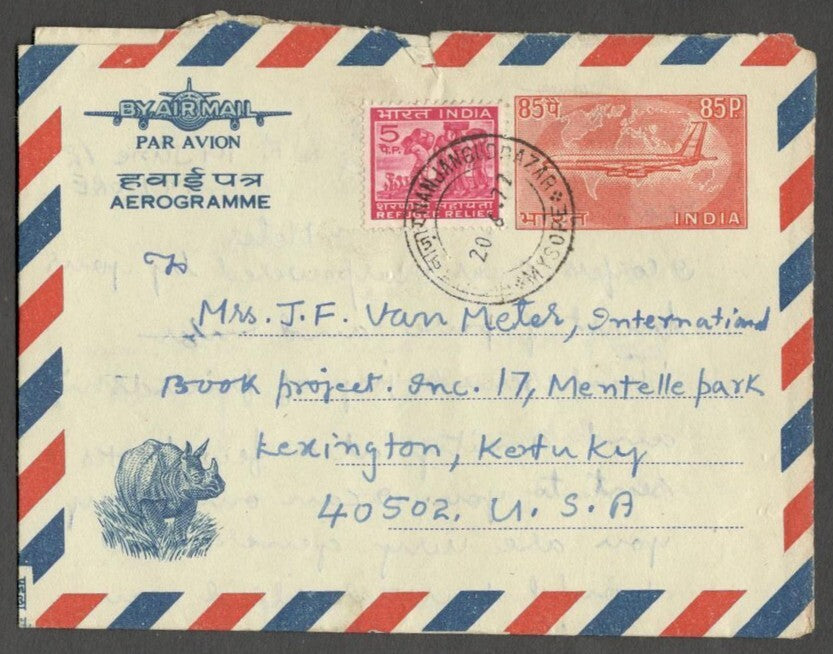 BY AIR MAIL
PAR AVION
हवाई पत्र
AEROGRAMME
भारत INDIA
5
पै.P.
शरणार्थी सहायता
REFUGEE RELIEF
85पै 85P.
भारत INDIA
NANJANGUD BAZAR
MYSORE
20
To
Mrs. J. F. Van Meter, International
Book project. Inc. 17, Mentelle park
Lexington, Kotuky
40502. U. S. A